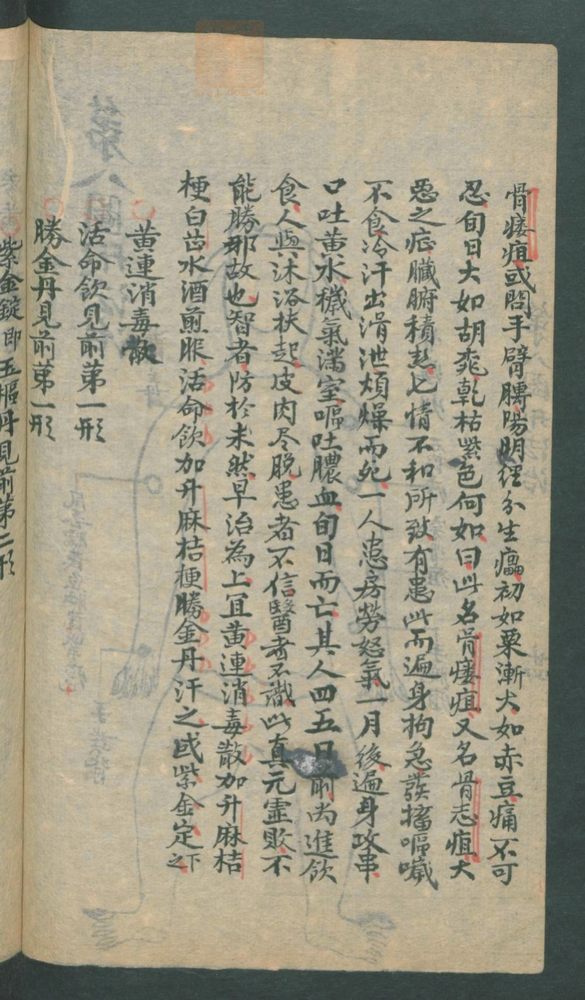 骨痿疽或問手臂膊陽明經分生瘟初如粟漸大如赤豆痛不可
忍旬日大如胡桃乾枯紫色何如曰此名骨痿疽又名骨志疽大
惡之症臟腑積熱七情不和所致有患此而遍身拘急發搐嘔噦
不食冷汗出滑泄煩燥而死一人患房勞怒氣一月後遍身攻串
口吐黄水穢氣滿室嘔吐膿血旬日而亡其人四五日前尚進飲
食人與沐浴扶起皮肉尽脱患者不信醫者不識此真元虛敗不
能勝邪故也智者防於未然早治為上宜黄連消毒散加升麻桔
梗白芷水酒煎服活命飲加升麻桔梗勝金丹汗之或紫金定下之
黄連消毒散
活命飲見前第一形
勝金丹見前第一形
紫金錠即玉樞丹見前第二形